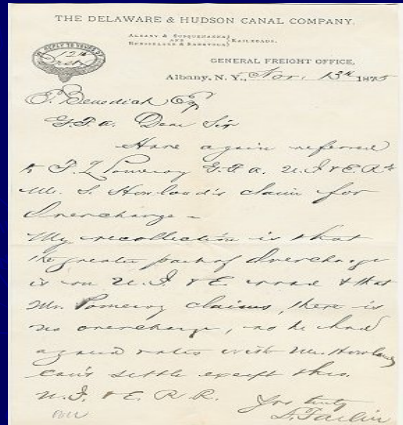 THE DELAWARE & HUDSON CANAL COMPANY.
ALBANY & SUSQUEHANNA
AND
RENSSELAER & SARATOGA
RAILROADS.
GENERAL FREIGHT OFFICE,
IN REPLY TO YOURS OF
12th
Albany, N.Y., Nov. 13th 1875
Benedict Esq
G.F.A. Dear Sir
Have again referred
to Pomeroy G.F.A.
Mr. S. Howland's claim for
Overcharge -
My recollection is that
the greater part of Overcharge
is on road & that
Mr. Pomeroy claims, there is
no overcharge, as he had
agreed rates with Mr. Howland
Can't settle except thro.
R.R.
Yrs truly